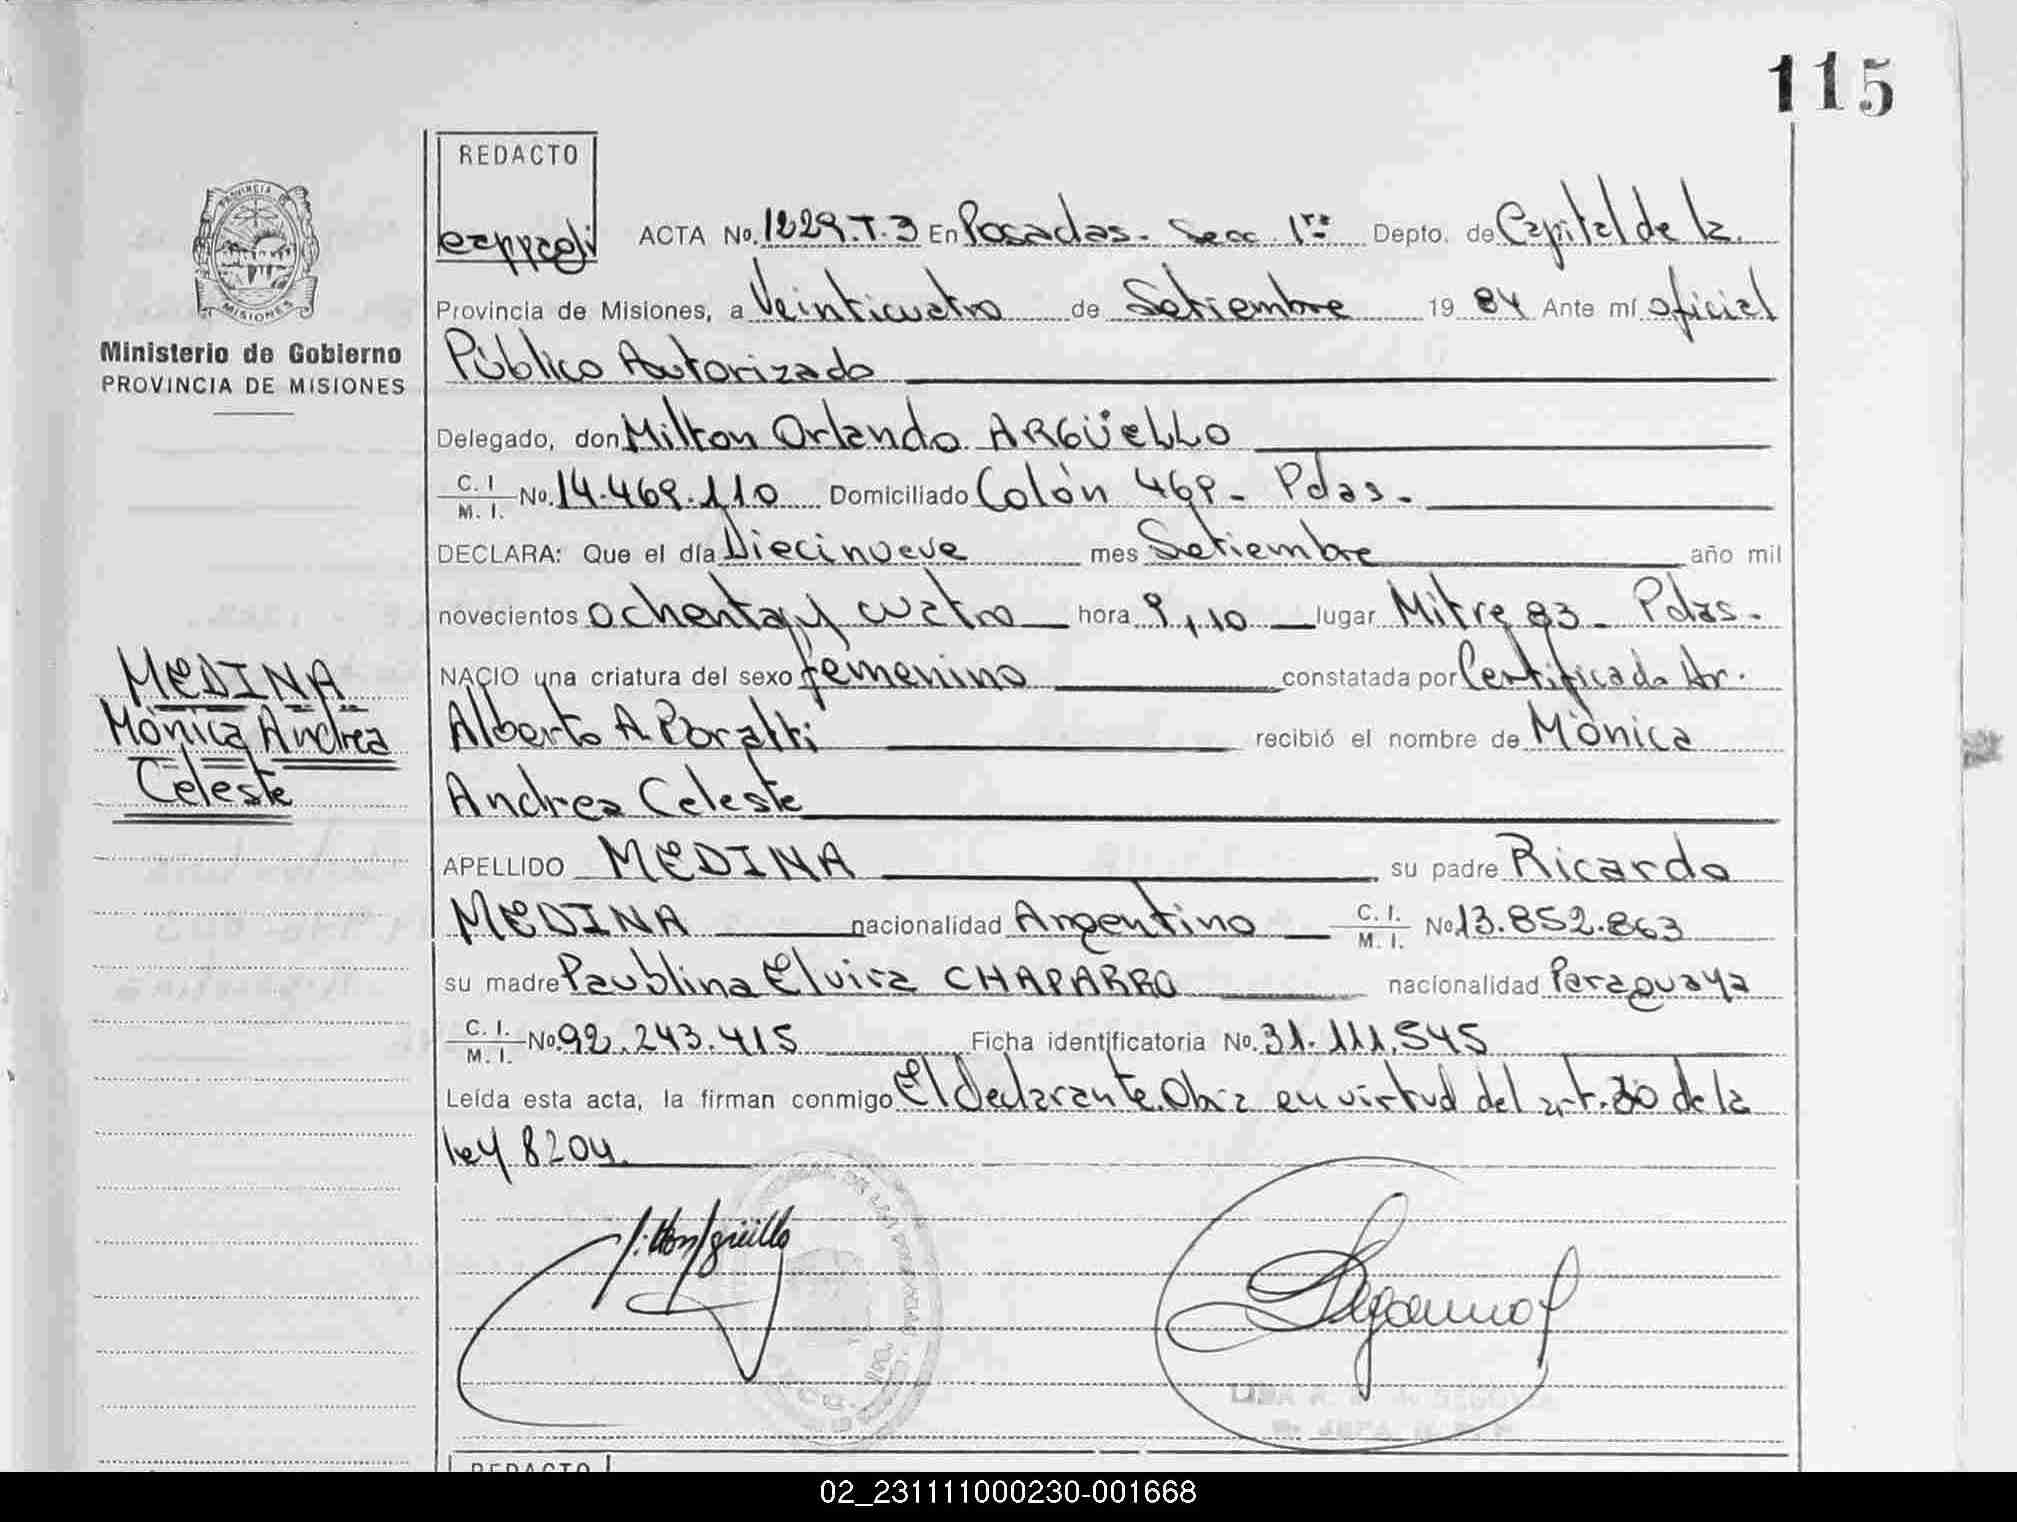 115
REDACTO
ACTA No. 1229.T.3 En Posadas - Secc 1ra Depto. de Capital de la
PROVINCIA DE
MISIONES
Provincia de Misiones, a Veinticuatro de Setiembre 19 84 Ante mí oficial
Ministerio de Gobierno
PROVINCIA DE MISIONES
Público Autorizado
Delegado, don Milton Orlando ARGÜELLO
C. I. M. I. No. 14.469.110 Domiciliado Colón 469 - Pdas -
DECLARA: Que el día Diecinueve mes Setiembre año mil
novecientos ochenta y cuatro hora 9,10 lugar Mitre 83 - Pdas -
NACIO una criatura del sexo femenino constatada por Certificado Dr.
MEDINA
Mónica Andrea
Celeste
Alberto A. recibió el nombre de Mónica
Andrea Celeste
APELLIDO MEDINA su padre Ricardo
MEDINA nacionalidad Argentino C. I. M. I. No 13.852.863
su madre Paublina Elvira CHAPARRO nacionalidad Paraguaya
C. I. M. I. No. 92.243.415 Ficha identificatoria No. 31.111.545
Leída esta acta, la firman conmigo El declarante. Obra en virtud del art. 30 de la
ley 8204.
REDACTO
02_231111000230-001668